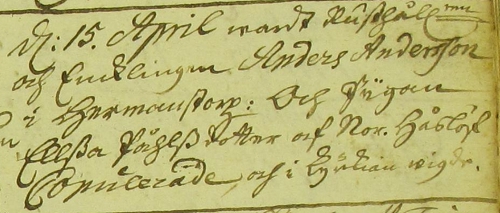 D: 15. April wardt Rusthåll<sup>ren</sup>
och Encklingen Anders Andersson
i Hermanstorp: Och Pÿgan
Elßa Påhlßdotter af Nor. Håslöf
Copulerade, och i Kyrkian wigde.